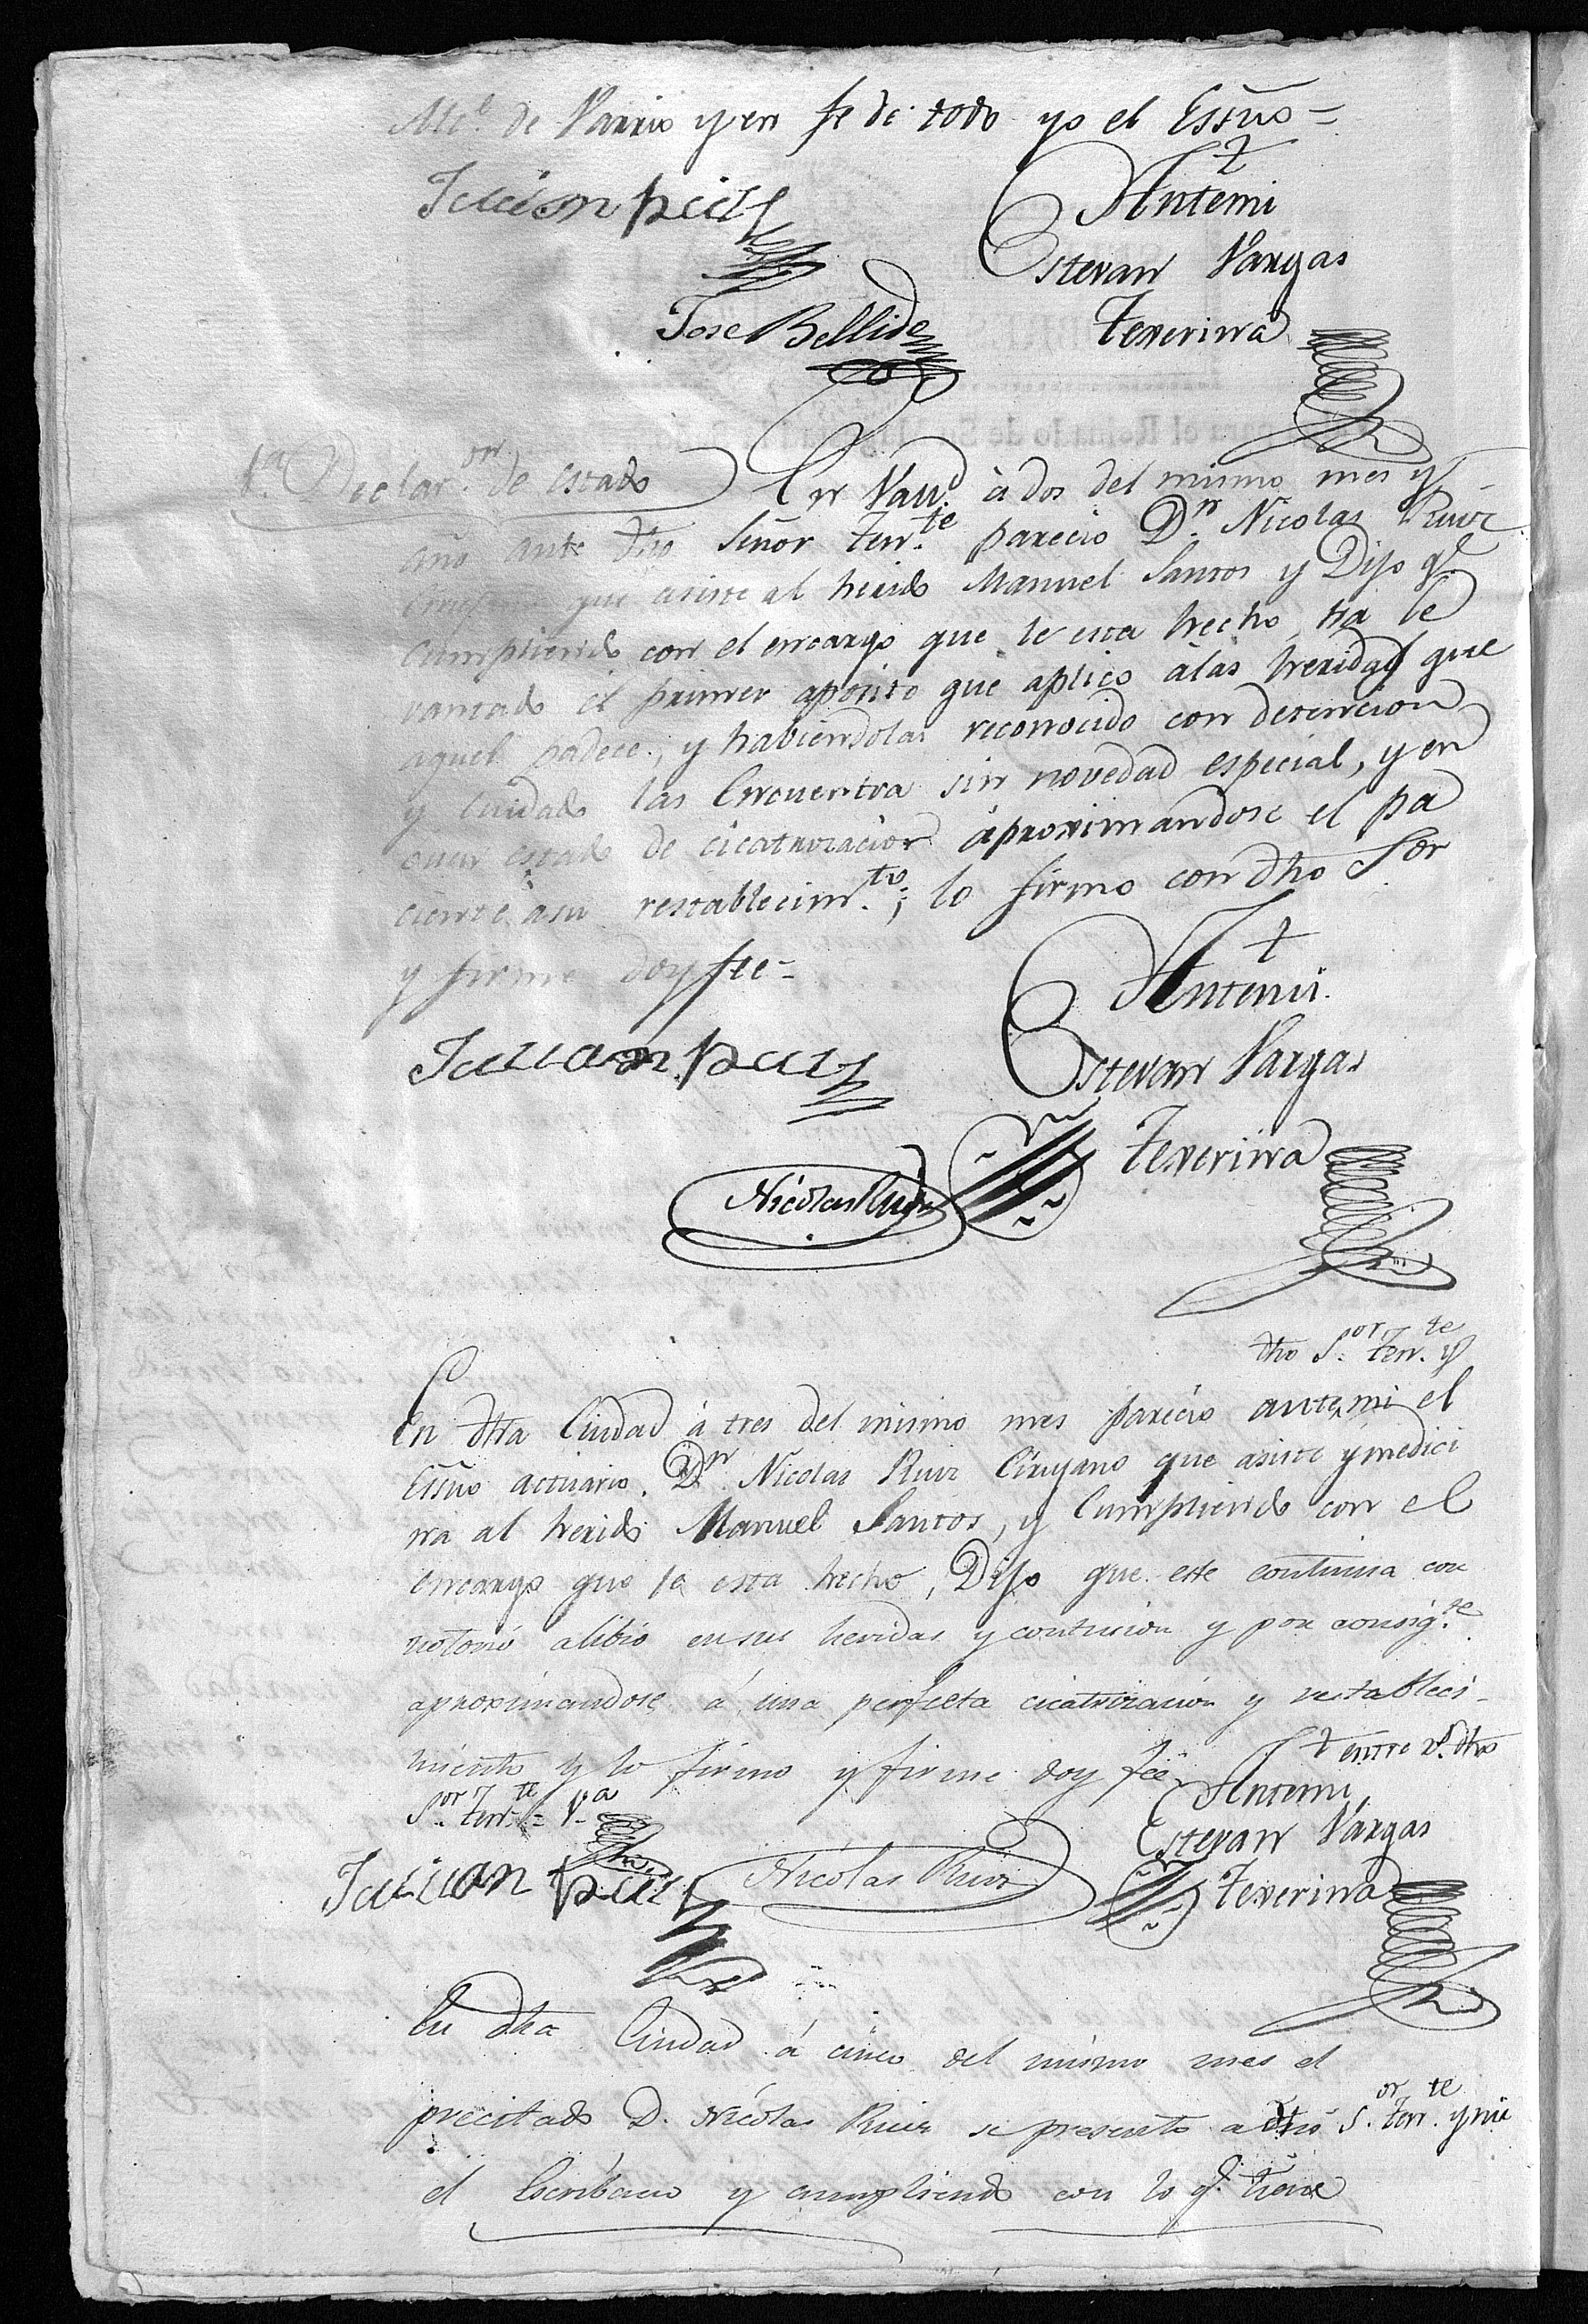 Mtᵉ. de Varrio y en fe de todo yo el Essño =
Juan Ruiz
Antemi
Estevan Vargas
Jose Bellido
Texerina
1.ª Declar.ᵒⁿ de estado
En Vall.ᵈ à dos del mismo mes y
año ante dho Señor Ten.ᵗᵉ parecio D.ⁿ Nicolas Ruiz
Cirujano que asiste al herido Manuel Santos y Dijo q.ᵉ
Cumpliendo con el encargo que le esta hecho ha le
vantado el primer aposito que aplico à las heridas que
aquel padece, y habiendolas reconocido con detencion
y cuidado las Encuentra sin novedad especial, y en
buen estado de cicatrizacion àproximandose el pa
ciente a su restablecim.ᵗᵒ; lo firmo con dho Sor
y firme doy fee =
Juan Ruiz
Antemi
Estevan Vargas
Texerina
Nicolas Ruiz
dho S.ᵒʳ Ten.ᵗᵉ y
En dha Ciudad à tres del mismo mes parecio ante mi el
Essño actuario. D.ⁿ Nicolas Ruiz Cirujano que asiste y medici
na al herido Manuel Santos, y Cumpliendo con el
encargo que le esta hecho, Dijo que este continua con
notorio alibio en sus heridas y contusion y por consig.ᵗᵉ
aproximandose á una perfecta cicatrizacion y restableci-
miento y lo firmo y firme doy fee =
entre r.ˢ dho
S.ᵒʳ Ten.ᵗᵉ = V.ᵃ
Antemi
Estevan Vargas
Juan Ruiz
Nicolas Ruiz
Texerina
En dha Ciudad á cinco del mismo mes el
precitado D. Nicolas Ruiz se presento a dho S.ᵒʳ Ten.ᵗᵉ y mi
el Escribano y cumpliendo con lo q.ᵉ tiene